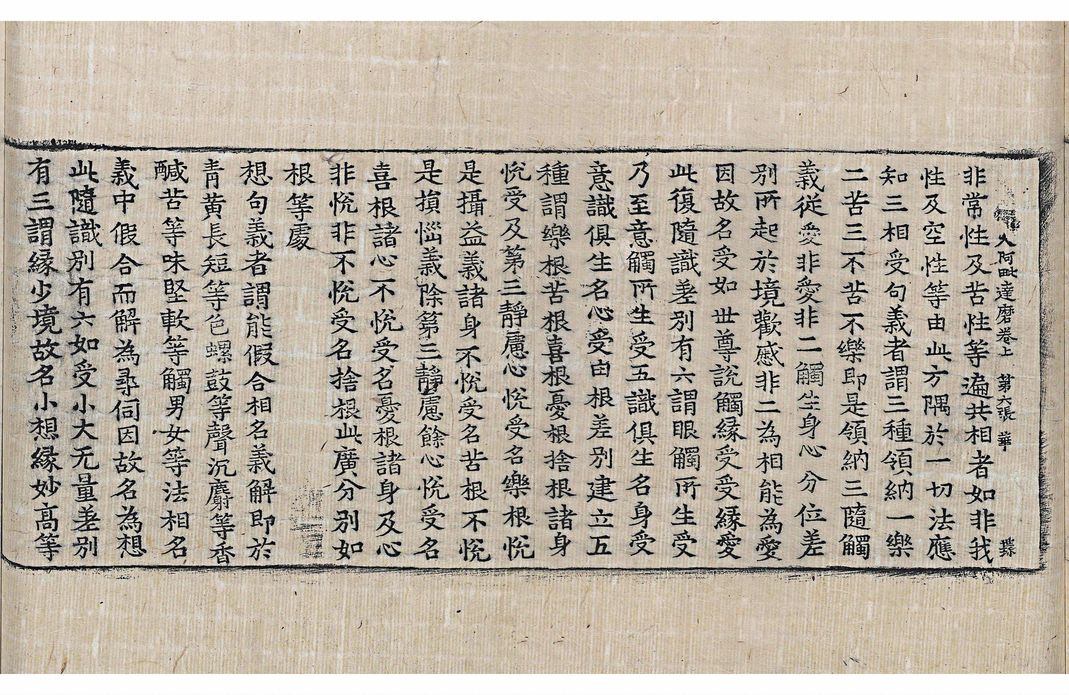 入阿毗達磨卷上 第六張 華
非常性及苦性等遍共相者如非我
性及空性等由此方隅於一切法應
知三相受句義者謂三種領納一樂
二苦三不苦不樂即是領納三隨觸
義從愛非愛非二觸生身心分位差
別所起於境歡慼非二為相能為愛
因故名受如世尊說觸緣受受緣愛
此復隨識差別有六謂眼觸所生受
乃至意觸所生受五識俱生名身受
意識俱生名心受由根差別建立五
種謂樂根苦根喜根憂根捨根諸身
悅受及第三靜慮心悅受名樂根悅
是攝益義諸身不悅受名苦根不悅
是損惱義除第三靜慮餘心悅受名
喜根諸心不悅受名憂根諸身及心
非悅非不悅受名捨根此廣分別如
根等處
想句義者謂能假合相名義解即於
青黃長短等色螺鼓等聲沉麝等香
醎苦等味堅軟等觸男女等法相名
義中假合而解為尋伺因故名為想
此隨識別有六如受小大无量差別
有三謂緣少境故名小想緣妙高等